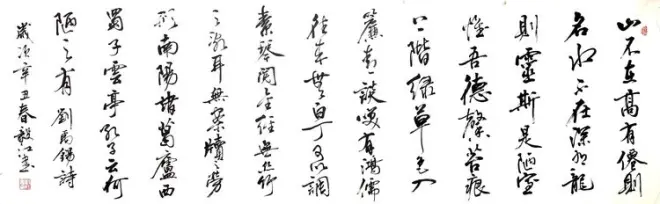 山不在高有僊則
名水不在深有龍
則靈斯是陋室
惟吾德馨苔痕
上階緑草色入
簾青談笑有鴻儒
往來無白丁可以調
素琴閱金經無絲竹
之亂耳無案牘勞
形南陽諸葛廬西
蜀子雲亭孔子云何
陋之有 劉禹錫詩
歲次辛丑春